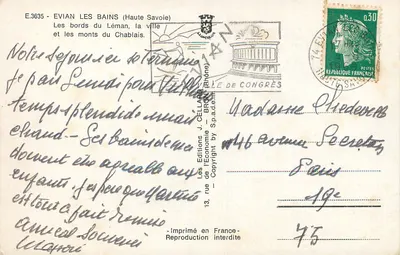 E.3635 - EVIAN LES BAINS (Haute Savoie)
Les bords du Léman, la ville
et les monts du Chablais.
VILLE DE CONGRÈS
0,30
POSTES
REPUBLIQUE FRANÇAISE
Notre séjour se termine
Je pars Lundi pour
temps splendide mais
chaud - Les bains
doivent être agréables aux
enfants. J'espère que Martine
est tout à fait remise
amical souvenir
Les Editions J. CELLARD
13, rue de l'Economie - BRON (Rhône)
Copyright by S.p.a.d.e.m.
Madame
46 avenue Secretan
Paris
19e
75
-Imprimé en France-
Reproduction interdite